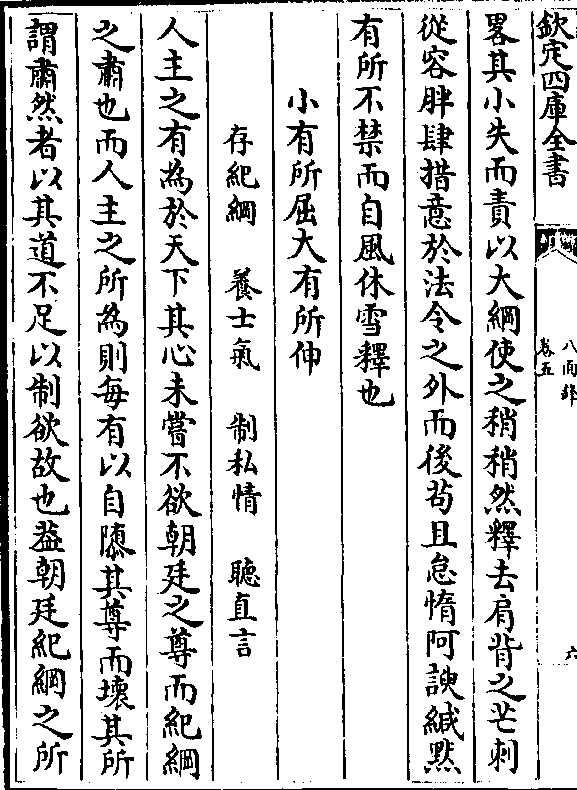 欽定四庫全書
八面鋒
卷五
六
畧其小失而責以大綱使之稍稍然釋去肩背之芒刺
從容胖肆措意於法令之外而後苟且怠惰阿諛緘默
有所不禁而自風休雪釋也
小有所屈大有所伸
存紀綱 養士氣 制私情 聽直言
人主之有為於天下其心未嘗不欲朝廷之尊而紀綱
之肅也而人主之所為則每有以自隳其尊而壊其所
謂肅然者以其道不足以制欲故也葢朝廷紀綱之所